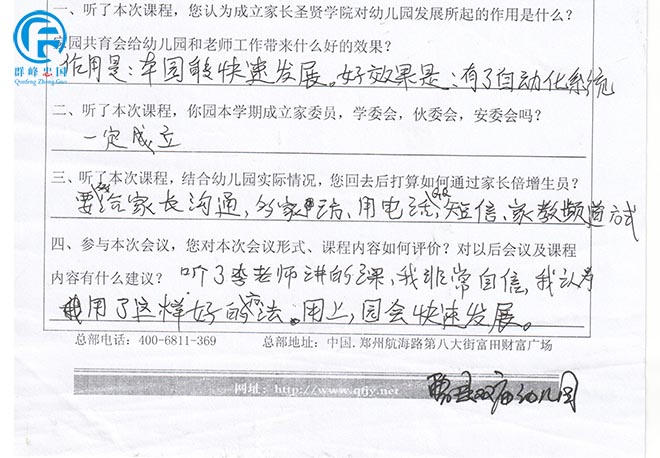 一、听了本次课程，您认为成立家长圣贤学院对幼儿园发展所起的作用是什么？
家园共育会给幼儿园和老师工作带来什么好的效果？
群峰忠国
Qunfeng Zhong Guo
作用是：本园能快速发展。好效果是：有了自动化系统
二、听了本次课程，你园本学期成立家委员，学委会，伙委会，安委会吗？
一定成立
三、听了本次课程，结合幼儿园实际情况，您回去后打算如何通过家长倍增生员？
要给家长沟通，访，用电话，短信，家教频道方式
四、参与本次会议，您对本次会议形式、课程内容如何评价？对以后会议及课程
内容有什么建议？ 听了李老师讲的课，我非常自信，我认为
用了这样好的方法。用上，园会快速发展。
总部电话：400-6811-369 总部地址：中国.郑州航海路第八大街富田财富广场
网址：http://www.qfjy.net
双庙幼儿园